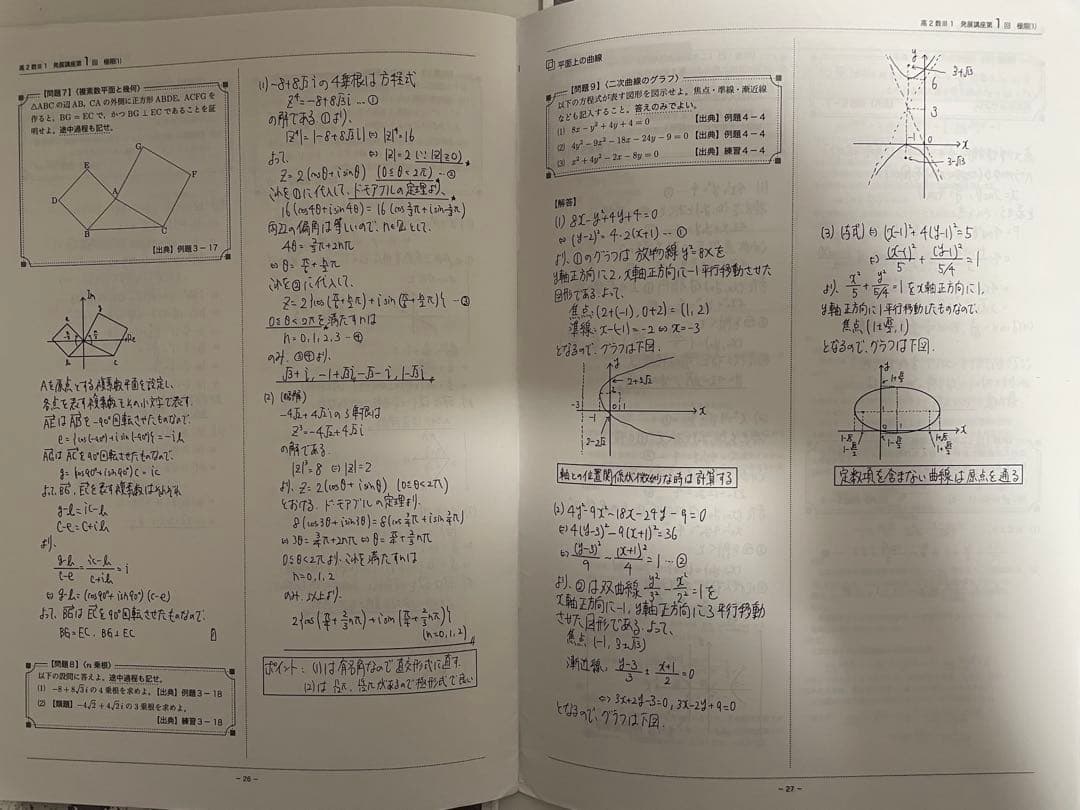 高2数Ⅲ1 発展講座第1回 極限(1)
【問題7】〈複素数平面と幾何〉
△ABCの辺AB, CAの外側に正方形ABDE, ACFGを
作ると, BG = ECで, かつBG⊥ECであることを証
明せよ. 途中過程も記せ.
G
E
F
A
D
B
C
【出典】例題3-17
Im
Re
Aを原点とする複素数平面を設定し,
各点を表す複素数をその小文字で表す.
AEはABを-90°回転させたものなので,
e={cos(-90°)+isin(-90°)}b=-ib
AGはACを90°回転させたものなので,
g=(cos90°+isin90°)c=ic
よって, BG, ECを表す複素数はそれぞれ
g-b=ic-b
c-e=c+ib
より,
(g-b)/(c-e)=(ic-b)/(c+ib)=i
⇔g-b=(cos90°+isin90°)(c-e)
よって, BGはECを90°回転させたものなので,
BG=EC, BG⊥EC
【問題8】〈n乗根〉
以下の設問に答えよ. 途中過程も記せ.
(1) -8+8√3iの4乗根を求めよ.【出典】例題3-18
(2)【類題】-4√2+4√2iの3乗根を求めよ.
【出典】練習3-18
(1) -8+8√3iの4乗根は方程式
Z⁴=-8+8√3i…①
の解である. ①より,
|Z|⁴=|-8+8√3i|⇔|Z|⁴=16
⇔|Z|=2(∵|Z|≧0)
よって,
Z=2(cosθ+isinθ) (0≦θ<2π)…②
これを①に代入して, ドモアブルの定理より,
16(cos4θ+isin4θ)=16(cos2/3π+isin2/3π)
両辺の偏角は等しいので, n∈Zとして,
4θ=2/3π+2nπ
⇔θ=π/6+n/2π
これを②に代入して,
Z=2{cos(π/6+n/2π)+isin(π/6+n/2π)}…③
0≦θ<2πを満たすnは
n=0,1,2,3…④
のみ. ③④より,
√3+i, -1+√3i, -√3-i, 1-√3i
(2) (略解)
-4√2+4√2iの3乗根は
Z³=-4√2+4√2i
の解である.
|Z|³=8⇔|Z|=2
より, Z=2(cosθ+isinθ) (0≦θ<2π)
とおける. ド・モアブルの定理より,
8(cos3θ+isin3θ)=8(cos3/4π+isin3/4π)
⇔3θ=3/4π+2nπ⇔θ=π/4+2/3nπ
0≦θ<2πより, これを満たすnは
n=0,1,2
のみ. 以上より,
2{cos(π/4+2/3nπ)+isin(π/4+2/3nπ)}
(n=0,1,2)
ポイント: (1)は有名角なので直交形式に直す.
-26-
高2数Ⅲ1 発展講座第1回 極限(1)
平面上の曲線
【問題9】〈二次曲線のグラフ〉
以下の方程式が表す図形を図示せよ. 焦点・準線・漸近線
なども記入すること. 答えのみでよい.
(1) 8x-y²+4y+4=0 【出典】例題4-4
(2) 4y²-9x²-18x-24y-9=0 【出典】例題4-4
(3) x²+4y²-2x-8y=0 【出典】練習4-4
【解答】
(1) 8x-y²+4y+4=0
⇔(y-2)²=4・2(x+1)…①
より, ①のグラフは放物線y²=8xを
y軸正方向に2, x軸正方向に-1平行移動させた
図形である. よって,
焦点:(2+(-1), 0+2)=(1,2)
準線:x-(-1)=-2⇔x=-3
となるので, グラフは下図.
y
2+2√2
2
-3
-1
0
1
x
2-2√2
軸との位置関係が微妙な時は計算する
(2) 4y²-9x²-18x-24y-9=0
⇔4(y-3)²-9(x+1)²=36
⇔(y-3)²/9-(x+1)²/4=1…②
より, ②は双曲線y²/3²-x²/2²=1を
x軸正方向に-1, y軸正方向に3平行移動
させた図形である. よって,
焦点(-1, 3±√13)
漸近線:(y-3)/3±(x+1)/2=0
⇔3x+2y-3=0, 3x-2y+9=0
となるので, グラフは下図.
y
3+√13
6
3
-1
0
x
3-√13
(3) (与式)⇔(x-1)²+4(y-1)²=5
⇔(x-1)²/5+(y-1)²/(5/4)=1
より, x²/5+y²/(5/4)=1をx軸正方向に1,
y軸正方向に1平行移動したものなので,
焦点(1±√15/2, 1)
となるので, グラフは下図.
y
x
定数項を含まない曲線は原点を通る
-27-